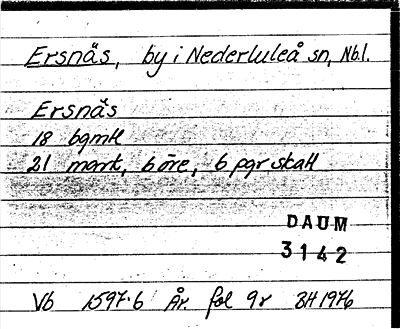 Ersnäs, by i Nederluleå sn, Nbl.
Ersnäs
18 bgmtl
21 mark, 6 öre, 6 pgr skatt
DAUM
3142
Vb 1597:6 År. fol 9r BH 1976